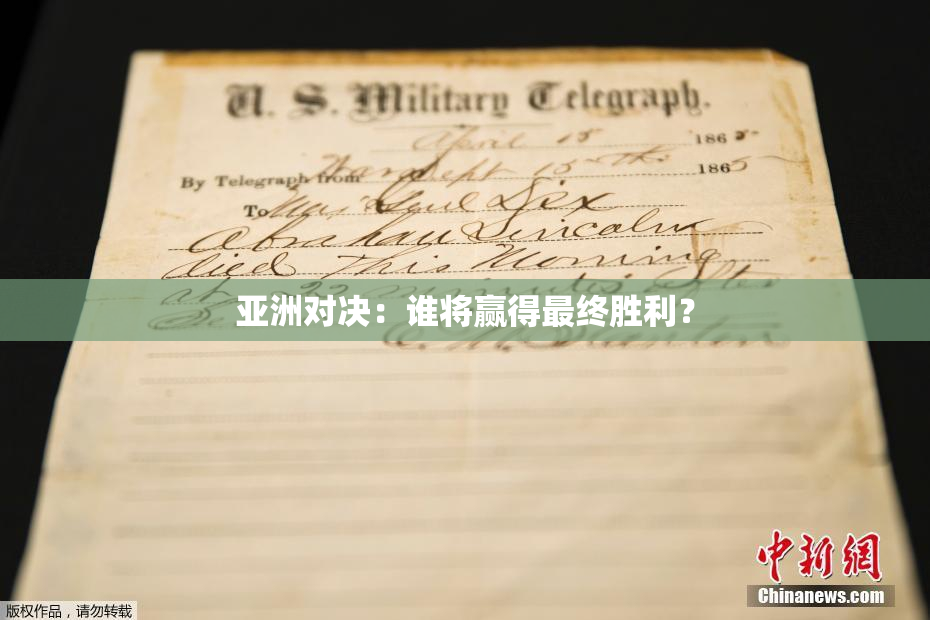 U. S. Military Telegraph.
April 15 1865
By Telegraph from War Dept 15th 1865
To Maj Genl Dix
Abraham Lincoln
died This Morning
at 22 minutes after
亚洲对决：谁将赢得最终胜利？
E. M. Stanton
中新网
Chinanews.com
版权作品，请勿转载